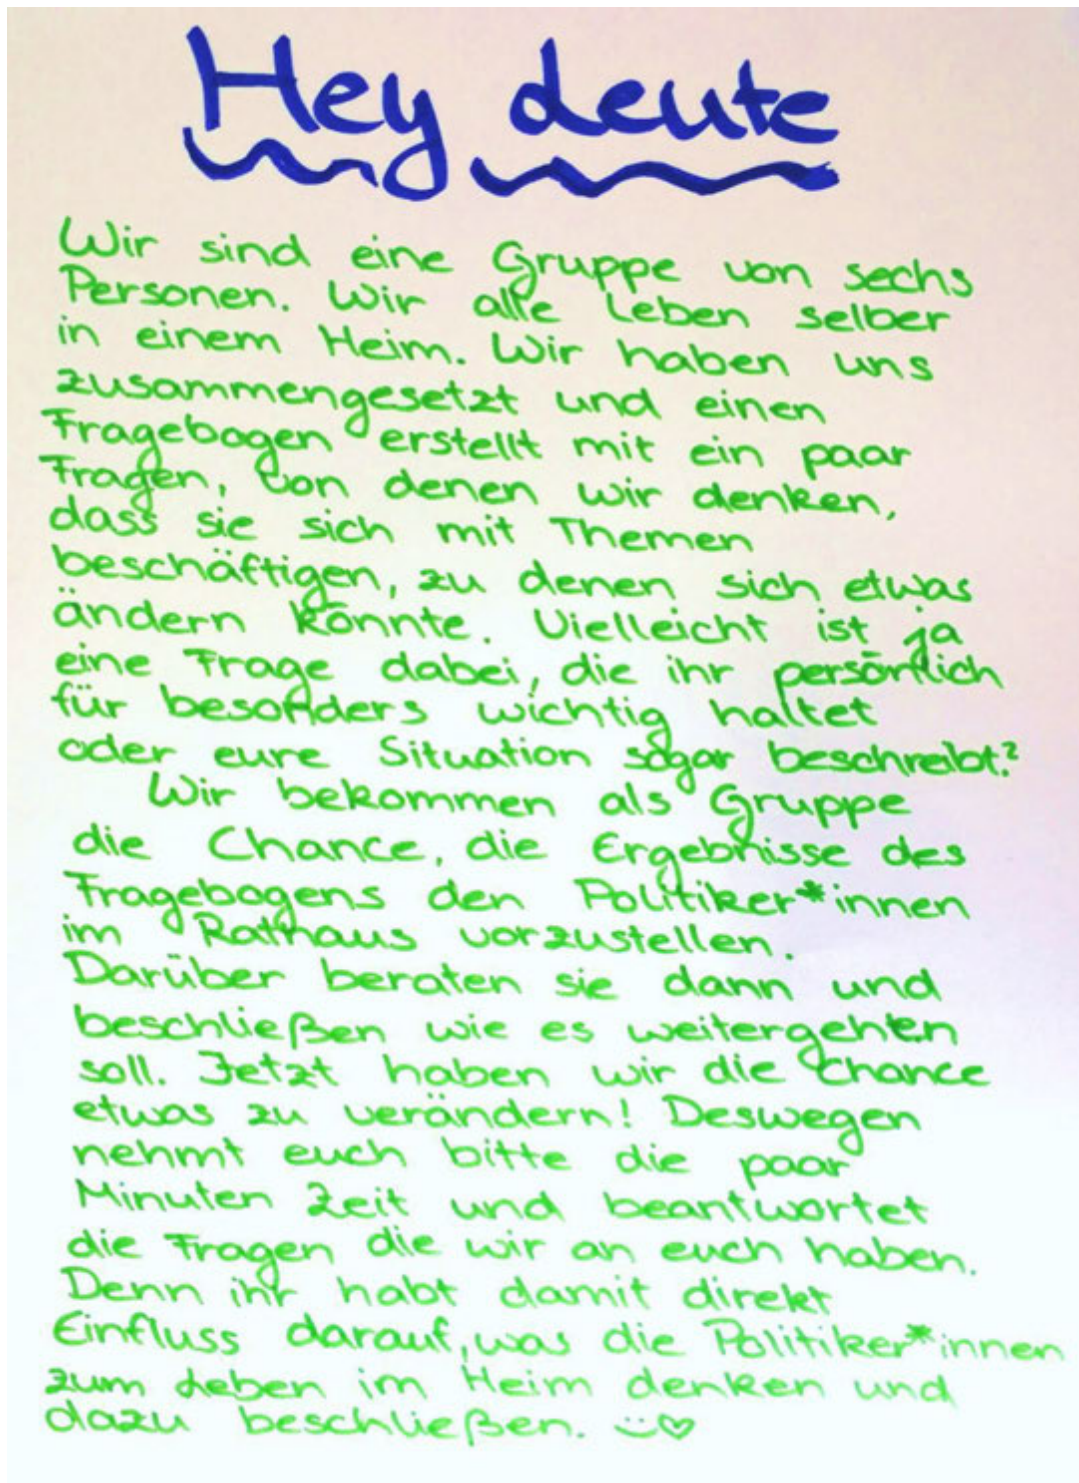 Hey Leute
Wir sind eine Gruppe von sechs
Personen. Wir alle leben selber
in einem Heim. Wir haben uns
zusammengesetzt und einen
Fragebogen erstellt mit ein paar
Fragen, von denen wir denken,
dass sie sich mit Themen
beschäftigen, zu denen sich etwas
ändern könnte. Vielleicht ist ja
eine Frage dabei, die ihr persönlich
für besonders wichtig haltet
oder eure Situation sogar beschreibt.?
Wir bekommen als Gruppe
die Chance, die Ergebnisse des
Fragebogens den Politiker*innen
im Rathaus vorzustellen.
Darüber beraten sie dann und
beschließen wie es weitergehen
soll. Jetzt haben wir die Chance
etwas zu verändern! Deswegen
nehmt euch bitte die paar
Minuten Zeit und beantwortet
die Fragen die wir an euch haben.
Denn ihr habt damit direkt
Einfluss darauf, was die Politiker*innen
zum Leben im Heim denken und
dazu beschließen. :)♡